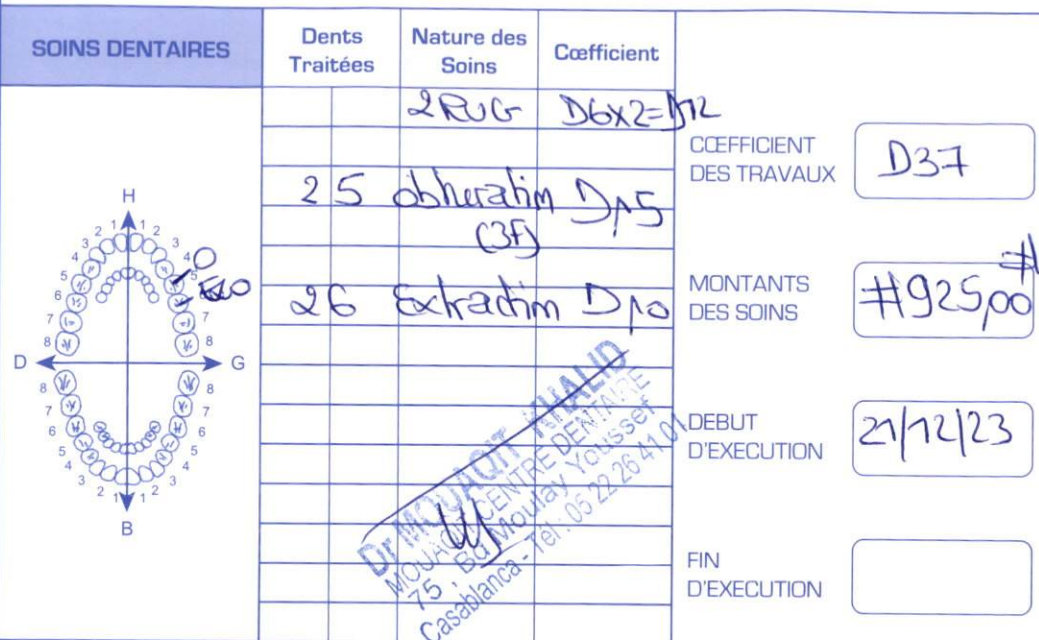 SOINS DENTAIRES
Dents Traitées
Nature des Soins
Cœfficient
2 RUG D6x2=D12
25 obturation D15
(3F)
26 Extraction D10
H
D G
B
CŒFFICIENT DES TRAVAUX
D37
MONTANTS DES SOINS
#925,00#
DEBUT D'EXECUTION
21/12/23
FIN D'EXECUTION
Dr MOUAQIT KHALID
MOUAQIT CENTRE DENTAIRE
75, Bd Moulay Youssef
Casablanca - Tél : 05 22 26 41 01